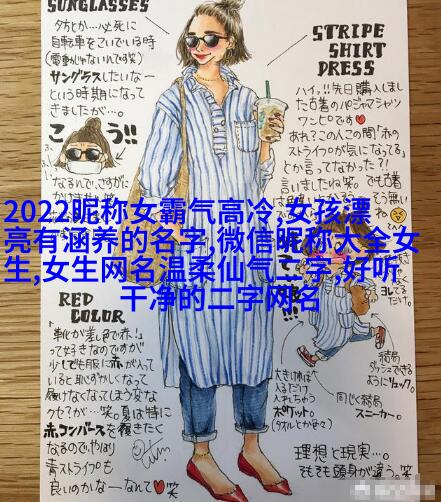 SUNGLASSES
夕方とか…必死に
自転車をこいでいる時
(電動じゃないんでね笑)
サングラスしたいなー
という時期になって
きましたが…。
STRIPE
SHIRT
DRESS
ハイッ!!先日購入しました
古着のパジャマシャツ
ワンピです♥
あれ?この人この間「赤の
ストライプが気になってる」
とか言ってなかった?!
言いましたね笑。でも古着
こう!!
なるんで、さすがに
2022昵称女霸气高冷,女孩漂
亮有涵养的名字,微信昵称大全女
生,女生网名温柔仙气二字,好听
干净的二字网名
RED
COLOR
靴が差し色で赤!
って好きなのですが
少しでも服に赤が入って
いると恥ずかしくなって
履けなくなってしまう変な
クセが…笑。夏は特に
赤コンバースを履きたく
なるので、やはり
青ストライプも
良いのかなーなんて♥笑
大きければ
入るだけ
入れちゃう
ポケット。
(タオルとか色々)
結局
ダッシュできる
ように
リュック。
同じく結局
スニーカー。
理想と現実…。
そもそも頭身が違う。笑